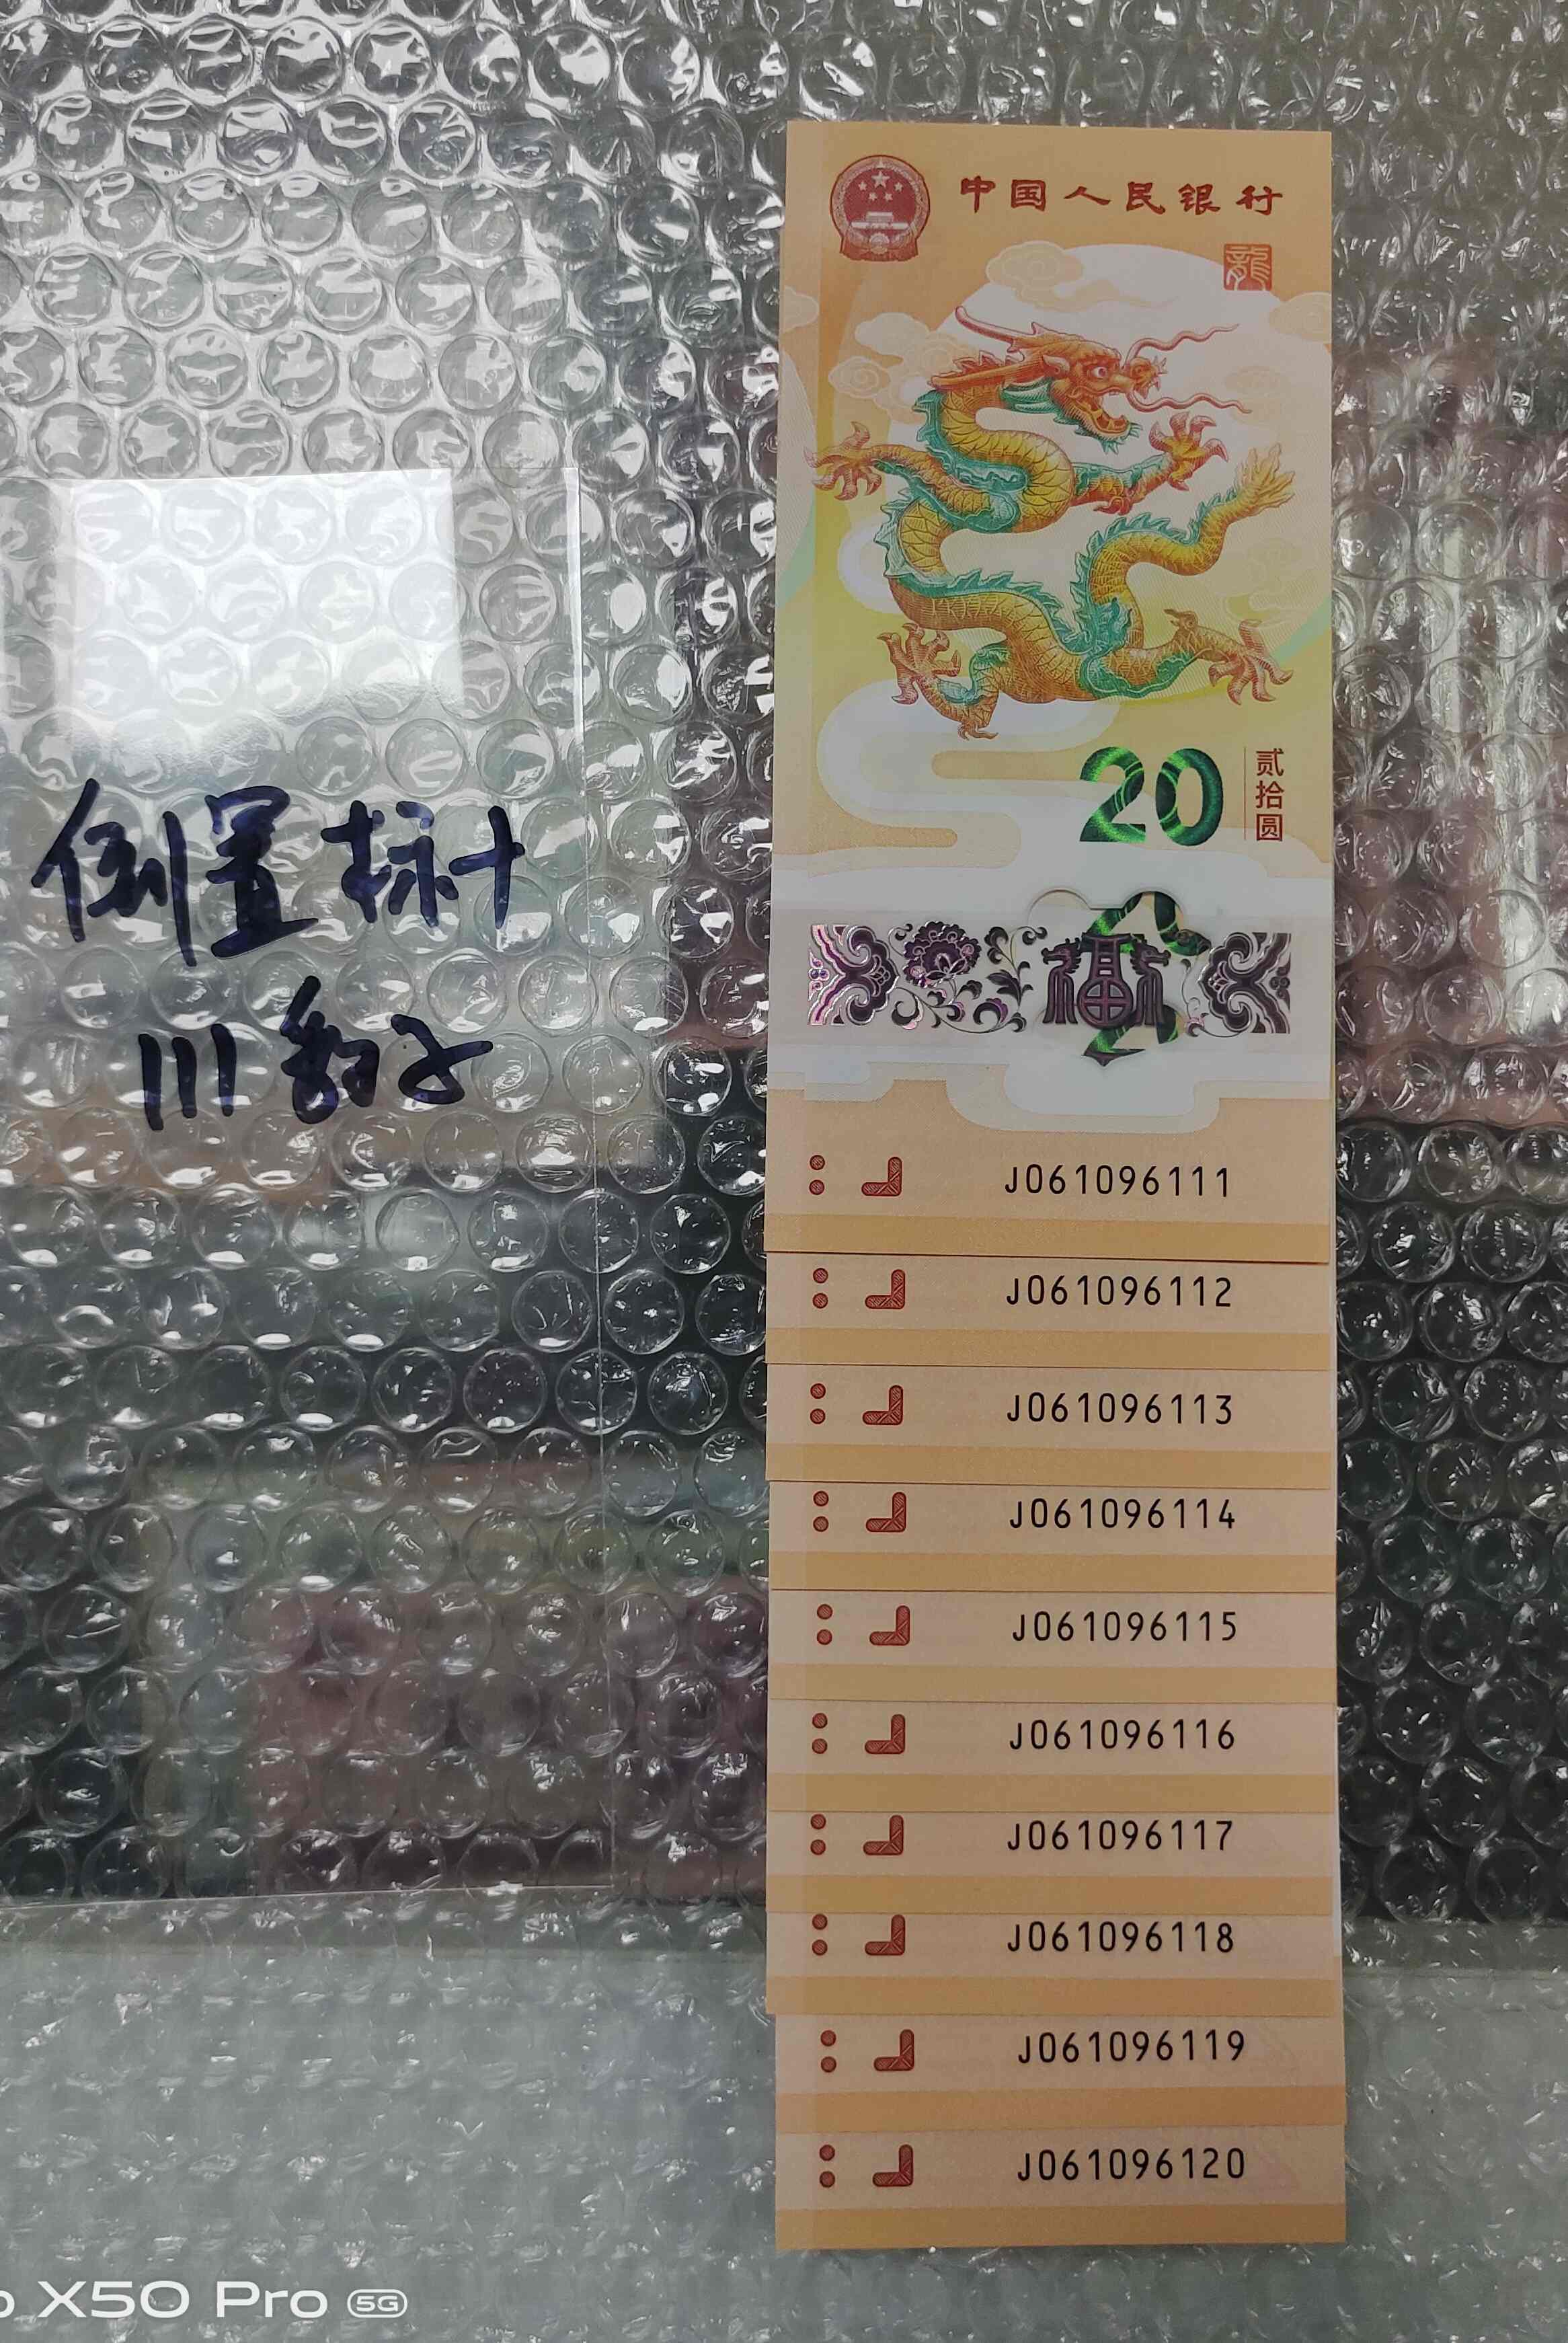 中国人民银行
龍
20
贰拾圆
福
倒置标十
111豹子
J061096111
J061096112
J061096113
J061096114
J061096115
J061096116
J061096117
J061096118
J061096119
J061096120
X50 Pro 5G